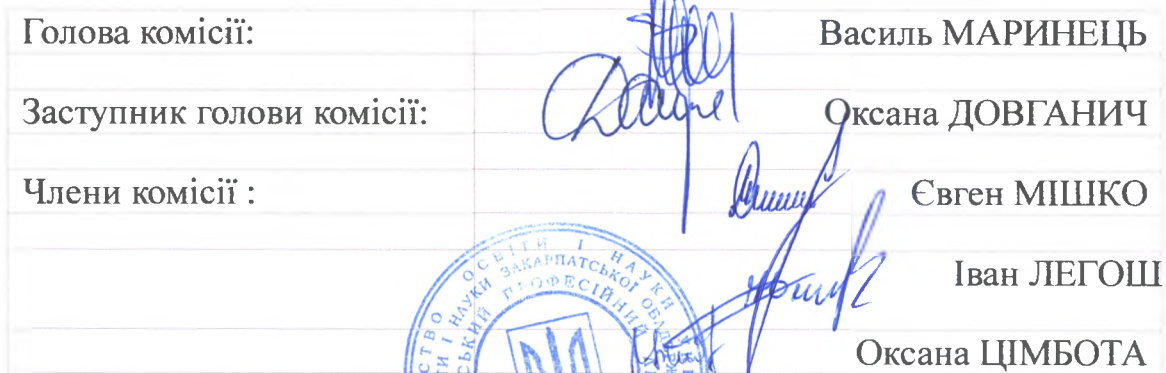 Голова комісії: Василь МАРИНЕЦЬ
Заступник голови комісії: Оксана ДОВГАНИЧ
Члени комісії : Євген МІШКО
Іван ЛЕГОШ
Оксана ЦІМБОТА
ОСВІТИ І НАУКИ
НАУКИ ЗАКАРПАТСЬКОЇ
ПРОФЕСІЙНИЙ